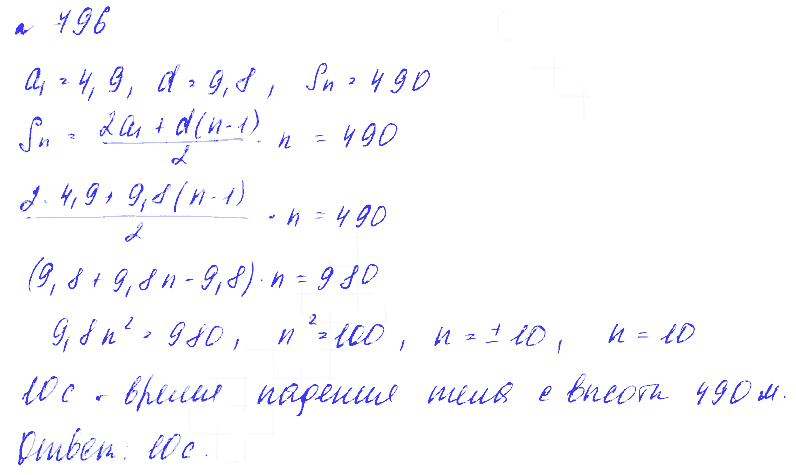 № 796
a₁ = 4,9, d = 9,8, Sn = 490
Sn = (2a₁ + d(n-1))/2 · n = 490
(2 · 4,9 + 9,8(n-1))/2 · n = 490
(9,8 + 9,8n - 9,8) · n = 980
9,8n² = 980, n² = 100, n = ±10, n = 10
10с - время падения тела с высоты 490м.
Ответ: 10с.